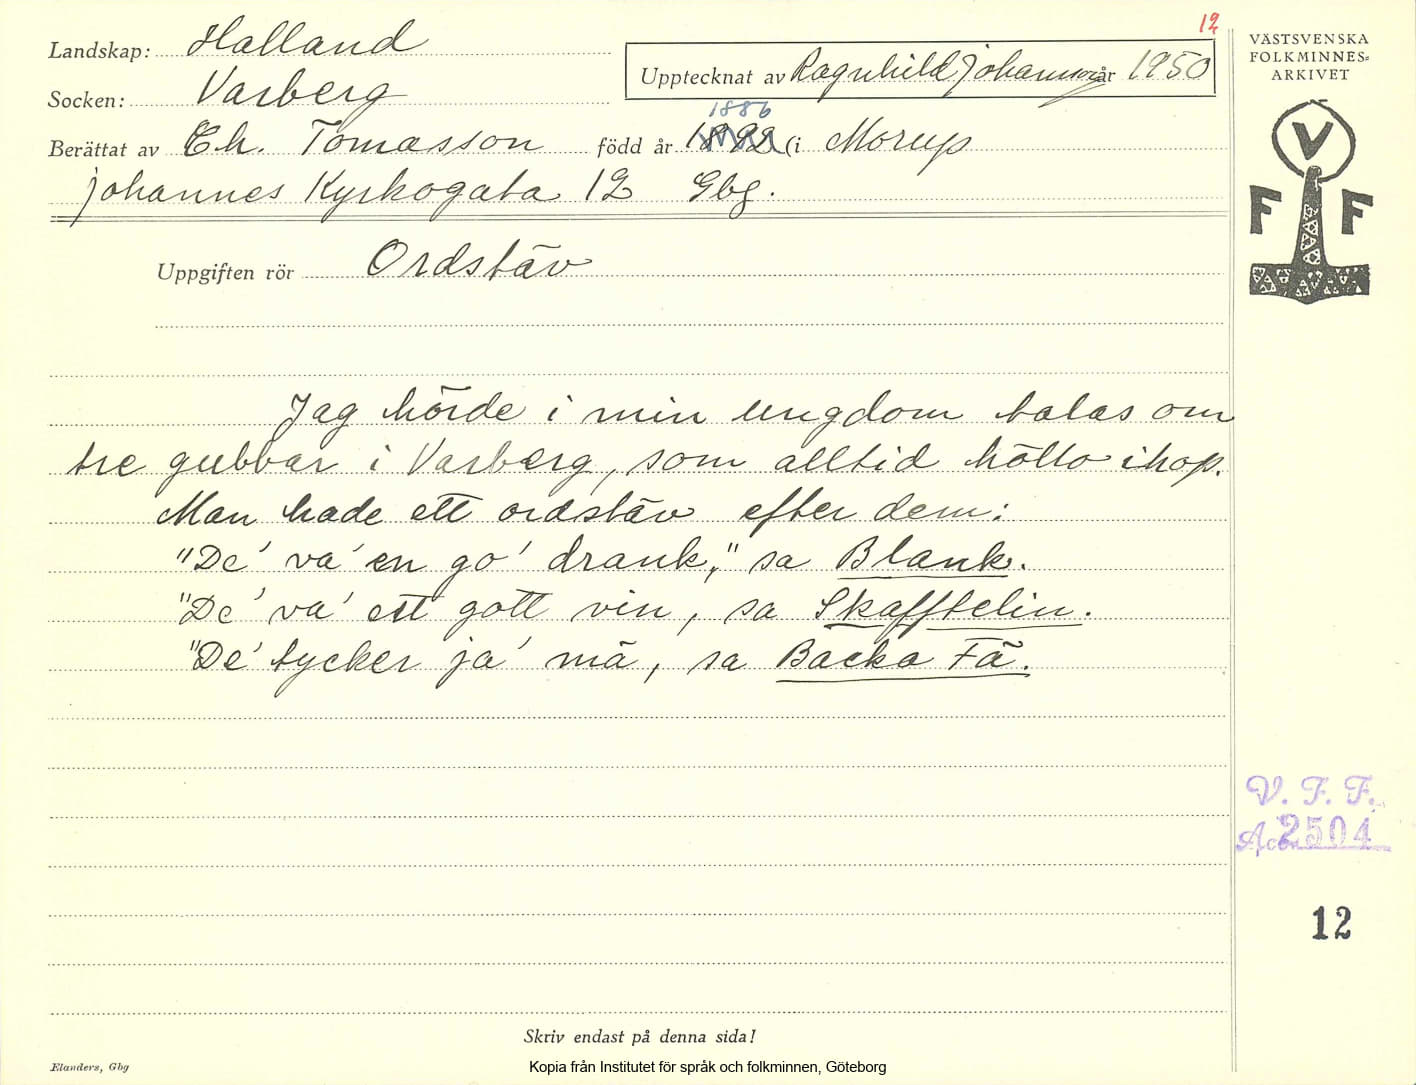 12
Landskap: Halland
Upptecknat av Ragnhild Johansson år 1950
Socken: Varberg
1886
Berättat av Th. Tomasson född år 1892 (i Morup
Johannes Kyrkogata 12 Gbg.
Uppgiften rör Ordstäv
Jag hörde i min ungdom talas om
tre gubbar i Varberg, som alltid höllo ihop.
Man hade ett ordstäv efter dem:
"De' va' en go' drank," sa Blank.
"De' va' ett gott vin, sa Skafftelin.
"De' tycker ja' mä, sa Backa Fä.
VÄSTSVENSKA
FOLKMINNES=
ARKIVET
V
F F
V. F. F.
Acc. 2504
12
Skriv endast på denna sida!
Elanders, Gbg
Kopia från Institutet för språk och folkminnen, Göteborg